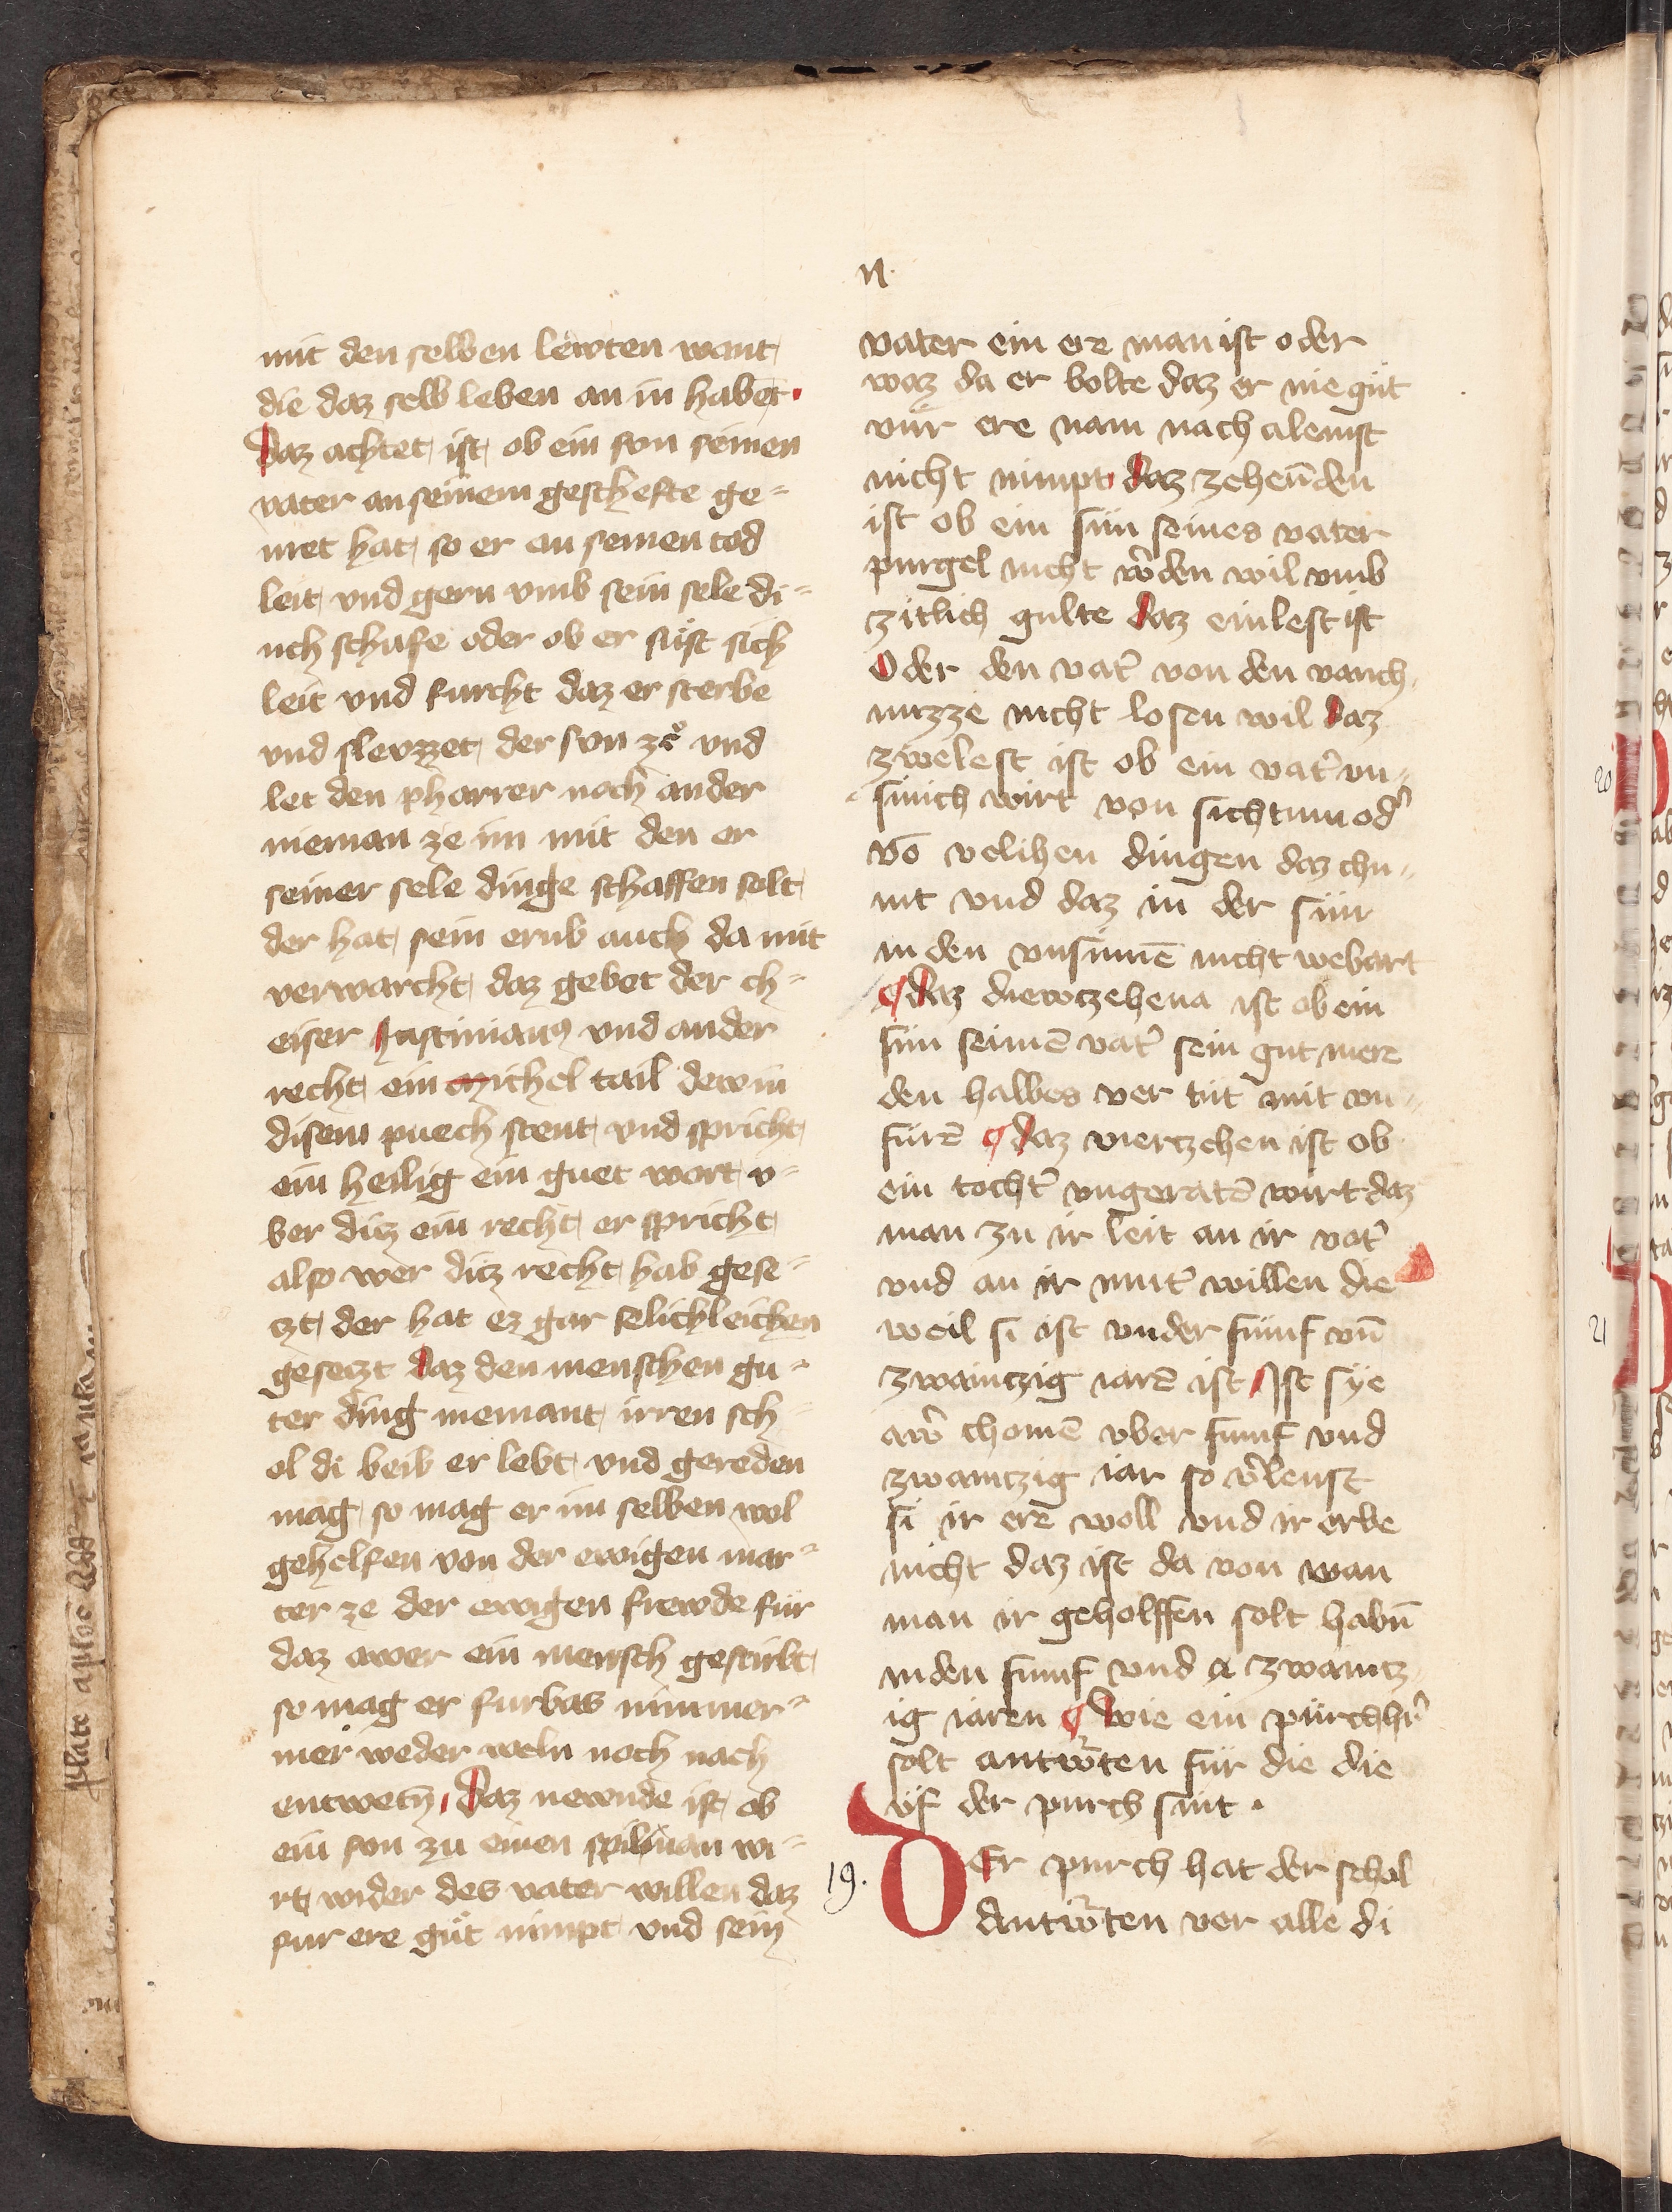 n.
mit den selben lewten want
die daz selb leben an in habet.
Daz achtet ist ob ein son seinen
vater an seinem geschefte ge-
irret hat so er an seinen tod
leit vnd gern vmb sein sele di-
nch schufe oder ob er süst sich
leit vnd furcht daz er sterbe
vnd slevzzet der son zů vnd
let den pharrer noch ander
nieman ze im mit den er
seiner sele dinge schaffen solt
der hat sein erub auch da mit
verwarcht daz gebet der ch-
eiser Justinianus vnd ander
recht ein michel tail dew in
disem puech stent vnd spricht
ein heilig ein guet wort v-
ber ditz ein recht er spricht
also wer ditz recht hab gese-
tzt der hat ez gar selichleichen
gesetzt daz den menschen gu-
ter ding niemant irren sch-
ol di beib er lebt vnd gereden
mag so mag er im selben wol
gehelfen von der ewigen mar-
ter ze der ewigen frewde für
daz awer ein mensch gestirbt
so mag er furbas nimmer-
mer weder weln noch nach
entwetn. Daz newnde ist ob
ein son zu einen spilman wi-
rt wider des vater willen daz
fur ere gůt nimpt vnd sein
vater ein ere man ist oder
waz da er bolte daz er nie gůt
vür ere nam nach alemst
nicht nimpt daz zehen̄den
ist ob ein sün seines vater
purgel nicht w̄den wil vmb
zitlich gulte daz einlest ist
Oder den vat' von den vanch
nuzze nicht losen wil daz
zwelest ist ob ein vat' vn-
sinich wirt von sichtum od'
vō velihen dingen daz chu-
mt vnd daz in der sün
in den vnsinnē nicht webart
¶ daz diewtzehena ist ob ein
sün seinē vat' sein gut mere
den halbes ver tůt mit vn-
fůrē ¶ daz viertzehen ist ob
ein tocht' vngeratē wirt daz
man zu ir leit an ir vat'
vnd an ir mut' willen die
weil si ist vnder fünf vn̄
zwaintzig iarē ist Ist sye
aw' chomē vber fumf vnd
zwaintzig iar so v'leust
si ir erē woll vnd ir erbe
nicht daz ist da von wan
man ir geholffen solt habn̄
in den fumf vnd zwaintz
ig iaren ¶ Wie ein pürchh'r
solt antw̄ten für die die
vf der purch sint.
19.
DEr purch hat der schol
Antw̄ten ver alle di
20
21